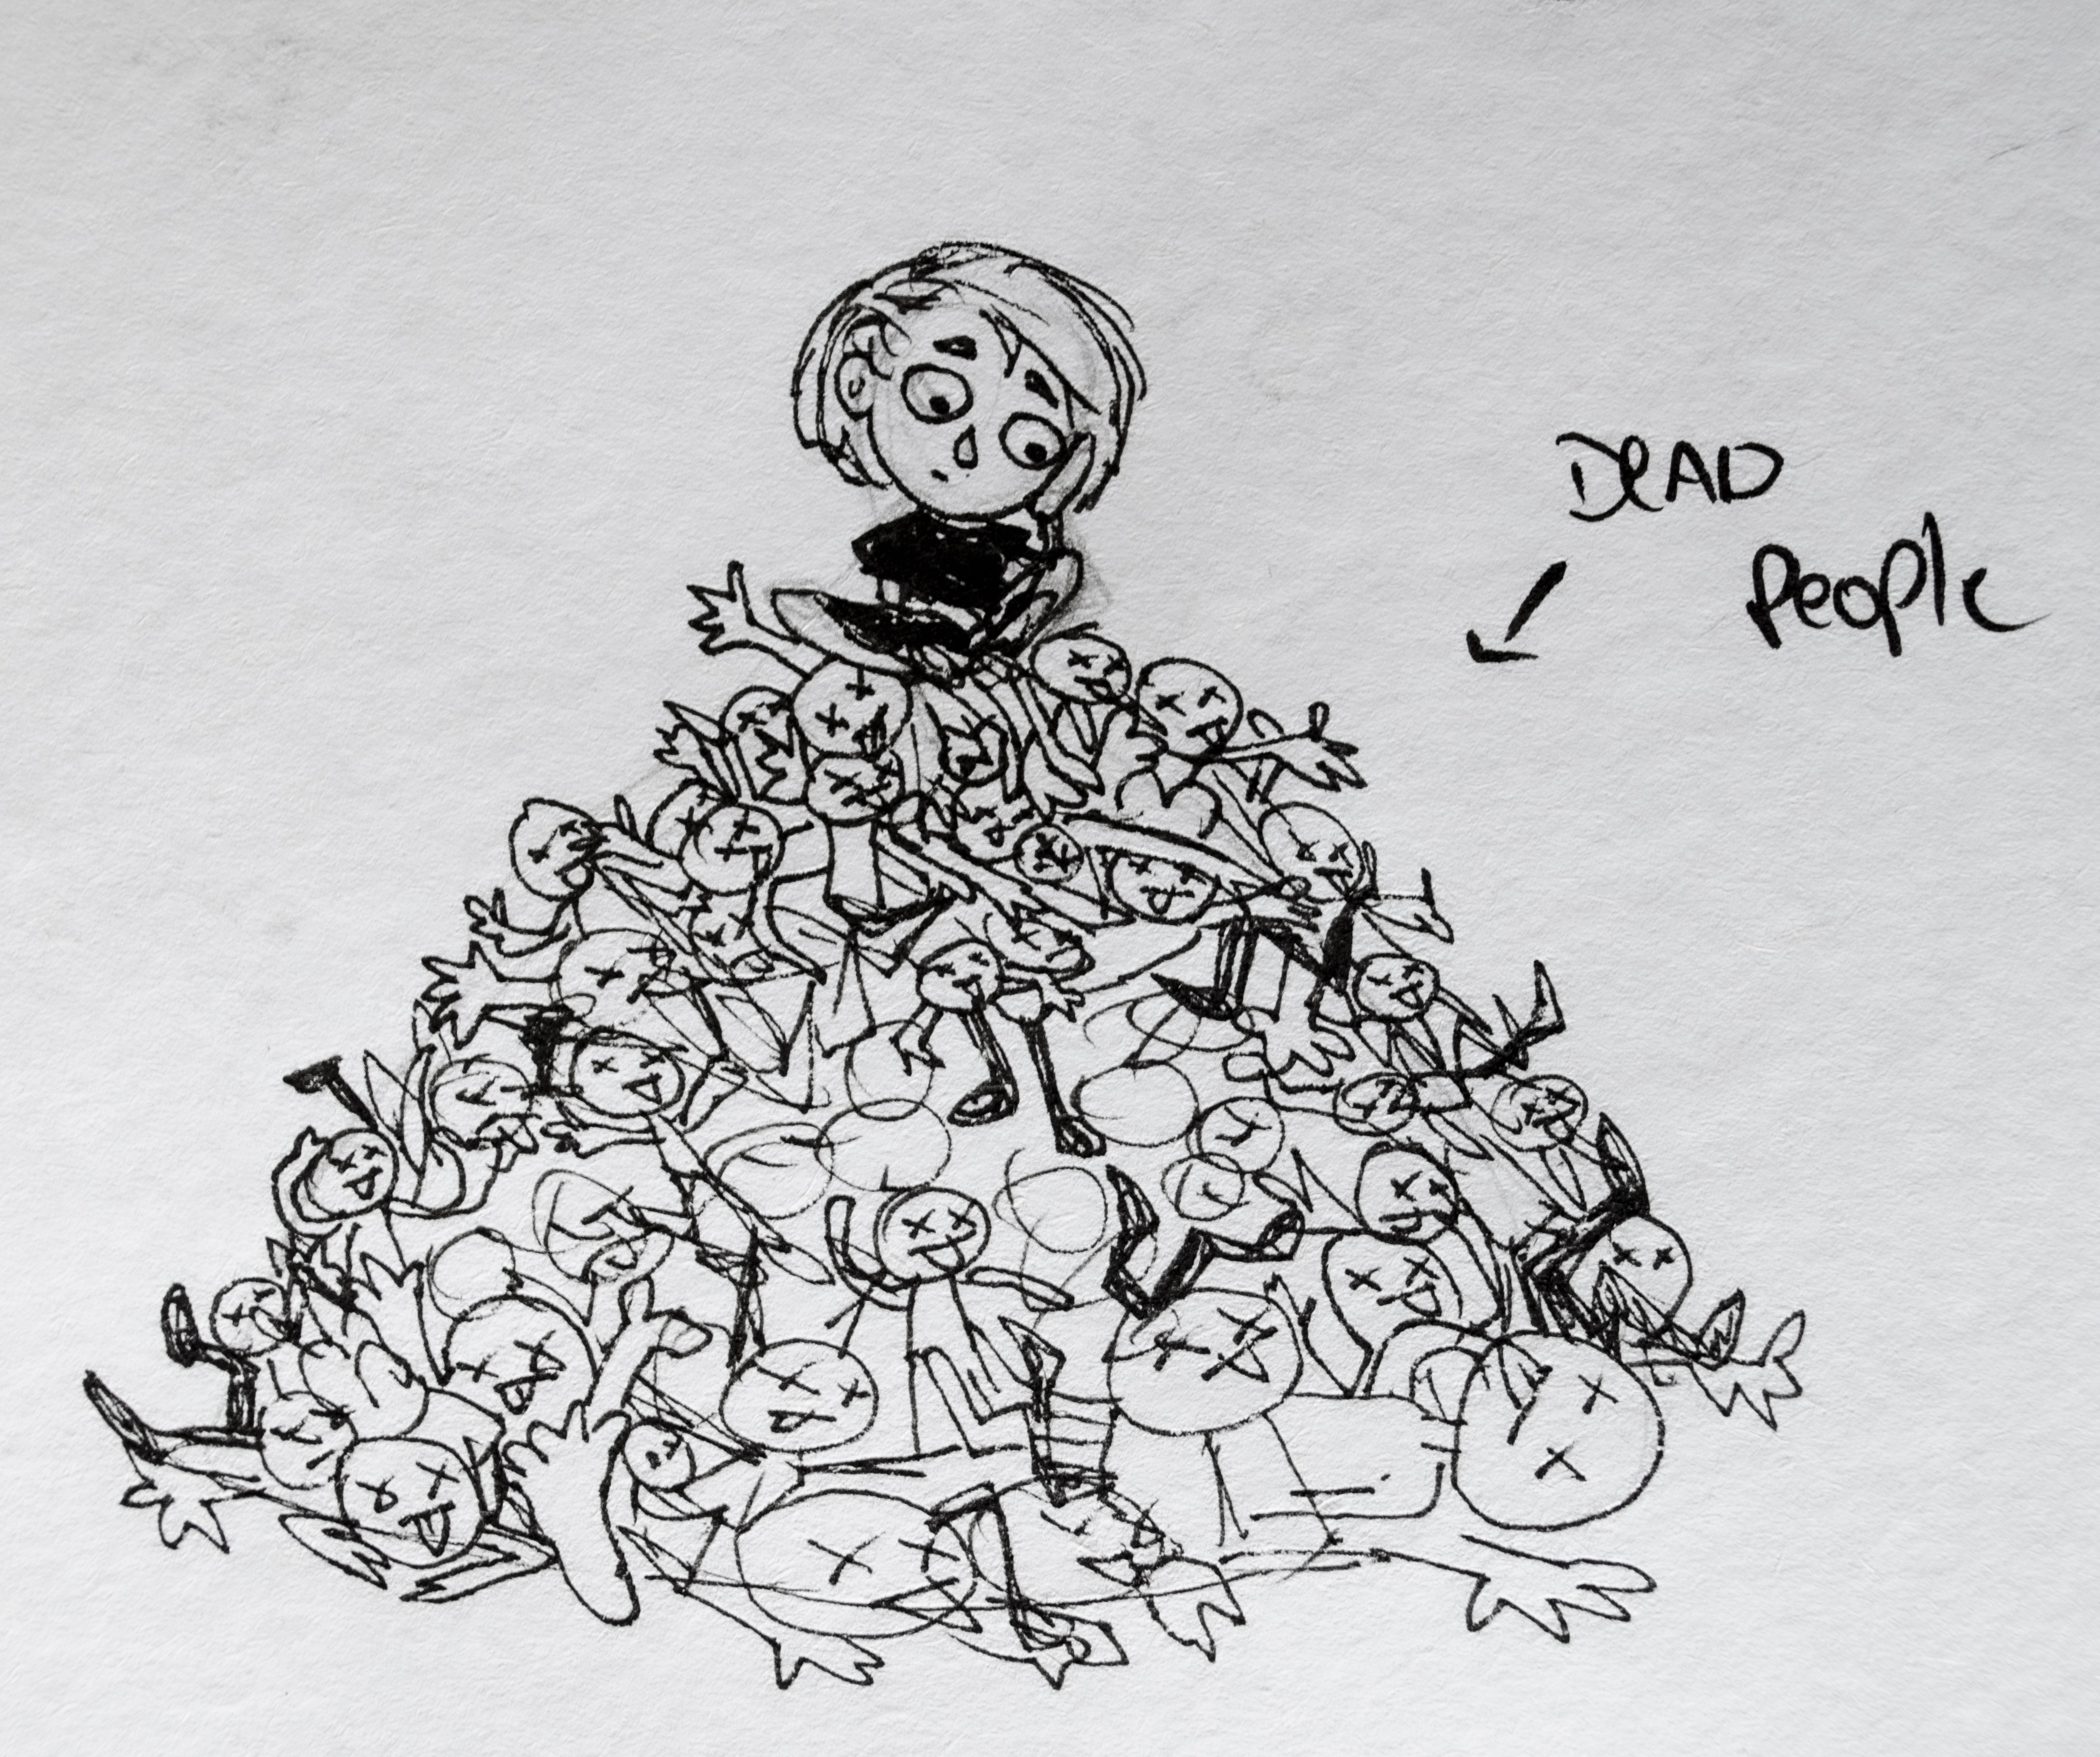 DeAD
PeoPle